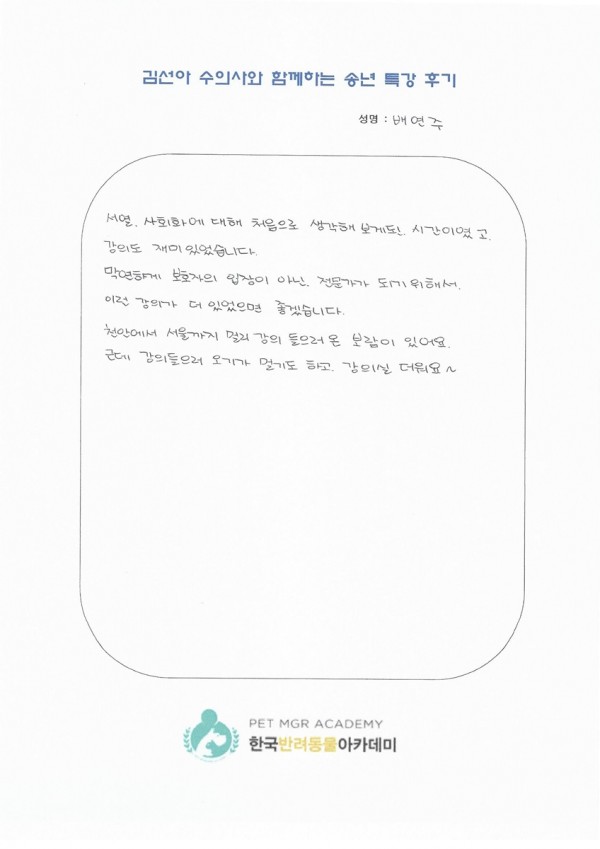 김선아 수의사와 함께하는 송년 특강 후기
성명 : 배연주
서열, 사회화에 대해 처음으로 생각해 보게된, 시간이였고,
강의도 재미있었습니다.
막연하게 보호자의 입장이 아닌, 전문가가 되기위해서,
이런 강의가 더 있었으면 좋겠습니다.
천안에서 서울까지 멀리 강의 들으러 온 보람이 있어요.
근데 강의들으러 오기가 멀기도 하고, 강의실 더워요~
PET MGR ACADEMY
한국반려동물아카데미